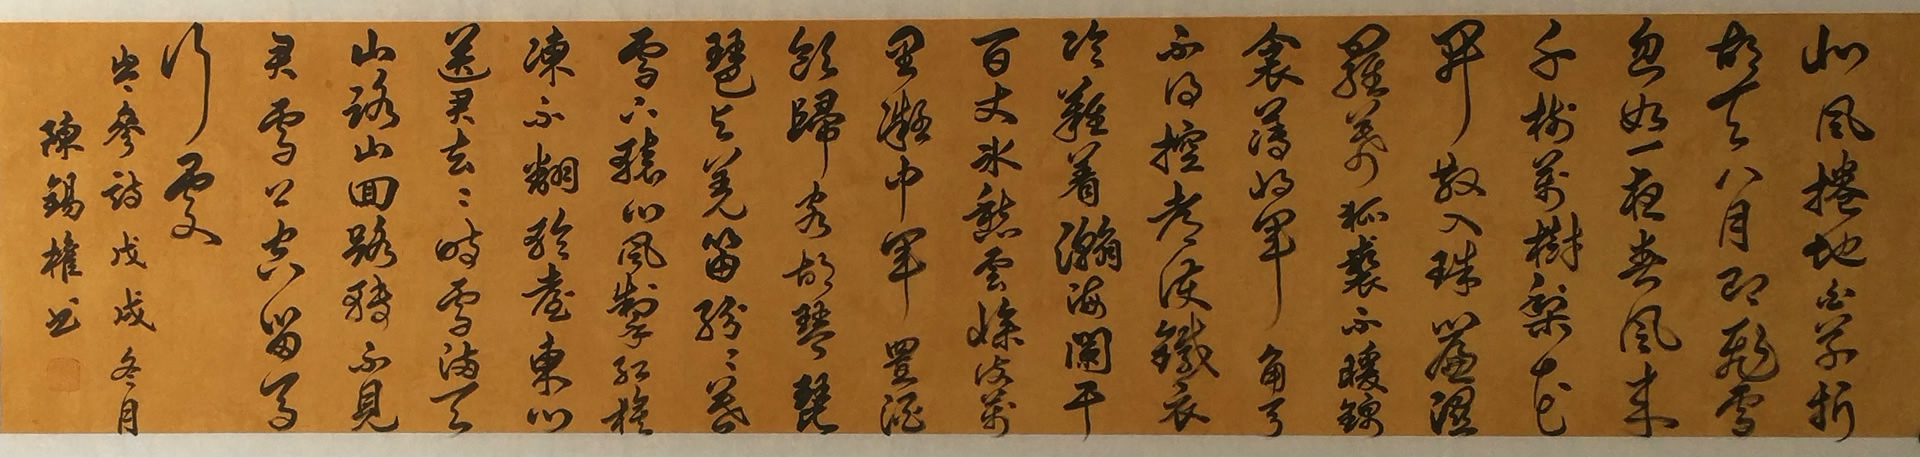 北風捲地白草折
胡天八月即飛雪
忽如一夜春風来
千樹萬樹梨花
開散入珠簾濕
羅幕狐裘不暖錦
衾薄将軍角弓
不得控都護鐵衣
冷難着瀚海闌干
百丈冰愁雲惨淡萬
里凝中軍置酒
飲歸客胡琴琵
琶與羌笛紛〻暮
雪下轅門風掣紅旗
凍不翻輪臺東門
送君去〻時雪滿天
山路山回路轉不見
君雪上空留馬
行處
岑參詩戊戌冬月
陳錫權書